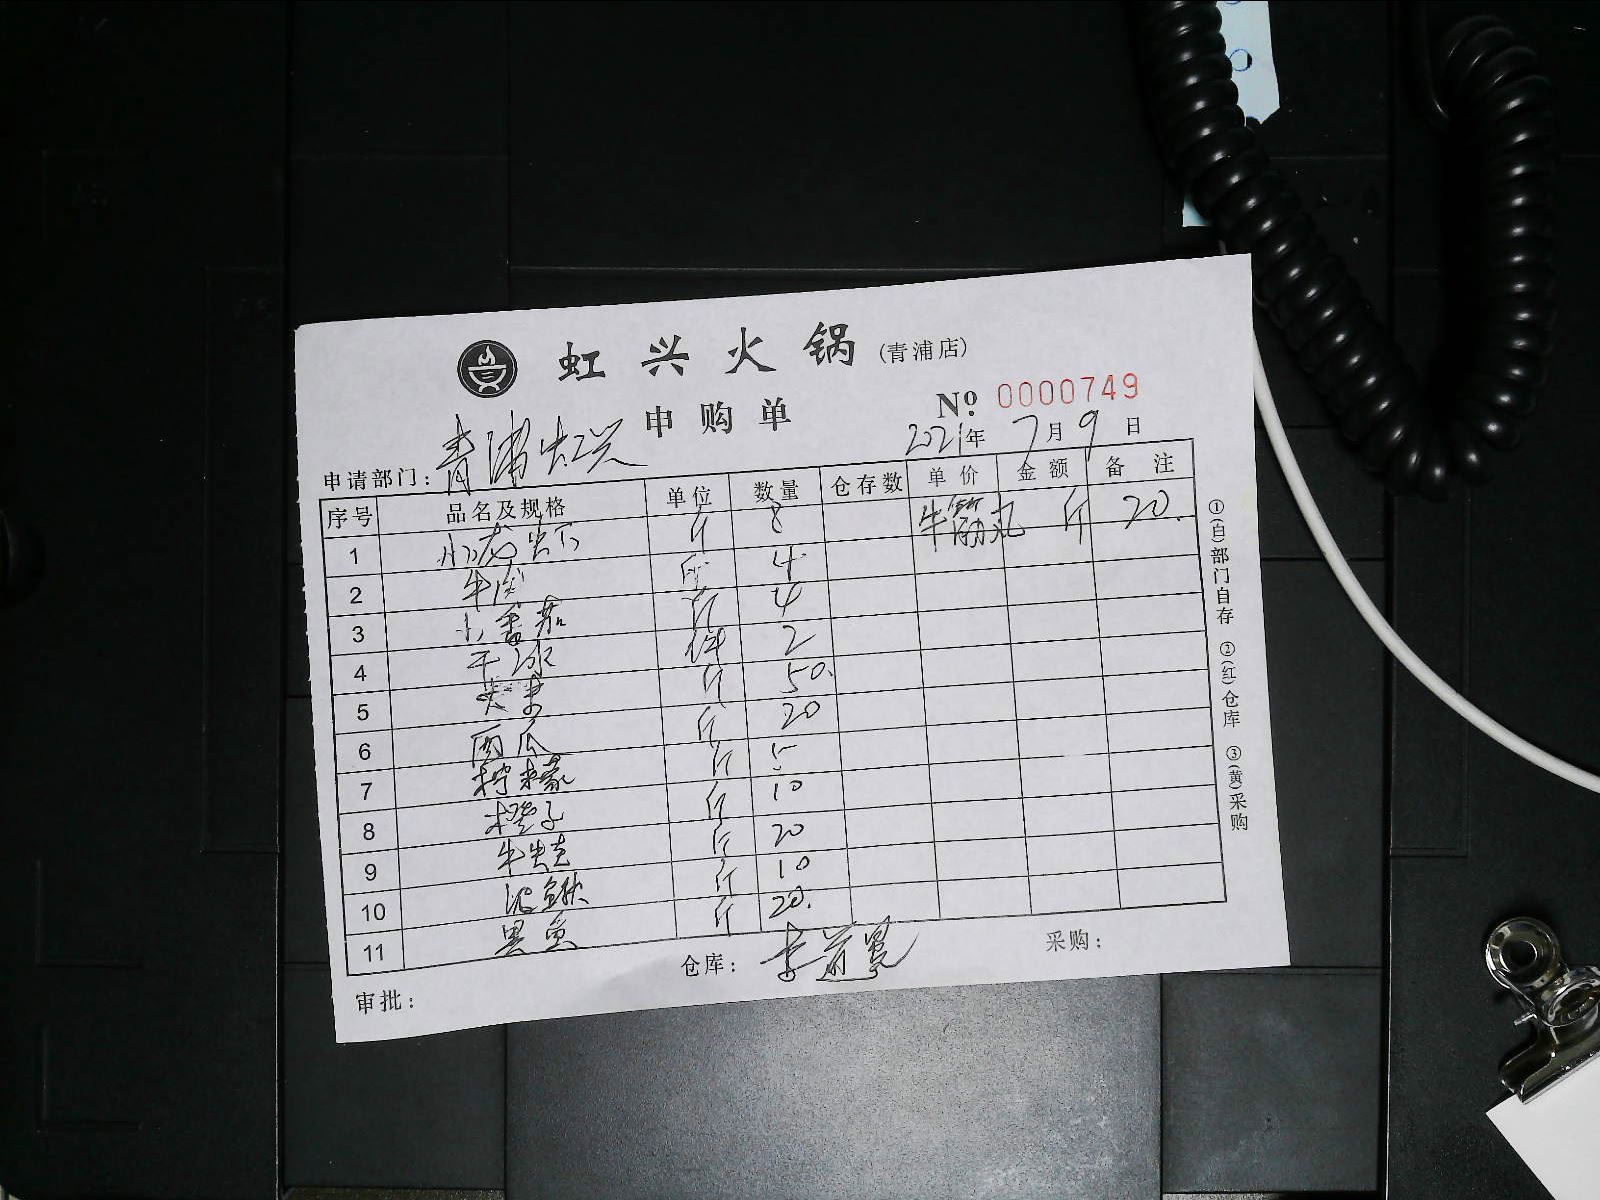 虹兴火锅 (青浦店)
申购单 No. 0000749
申请部门：青浦虹兴 2021年 7月 9日
序号 品名及规格 单位 数量 仓存数 单价 金额 备注
1 小龙虾 斤 8 牛筋丸 斤 20.
2 牛肉 斤 4
3 小番茄 斤 4
4 干冰 件 2
5 斤 50.
6 西瓜 斤 20
7 柠檬 斤 5
8 橙子 斤 10
9 牛蛙 斤 20
10 泥鳅 斤 10
11 黑鱼 斤 20.
审批： 仓库：李 采购：
①(白)部门自存 ②(红)仓库 ③(黄)采购